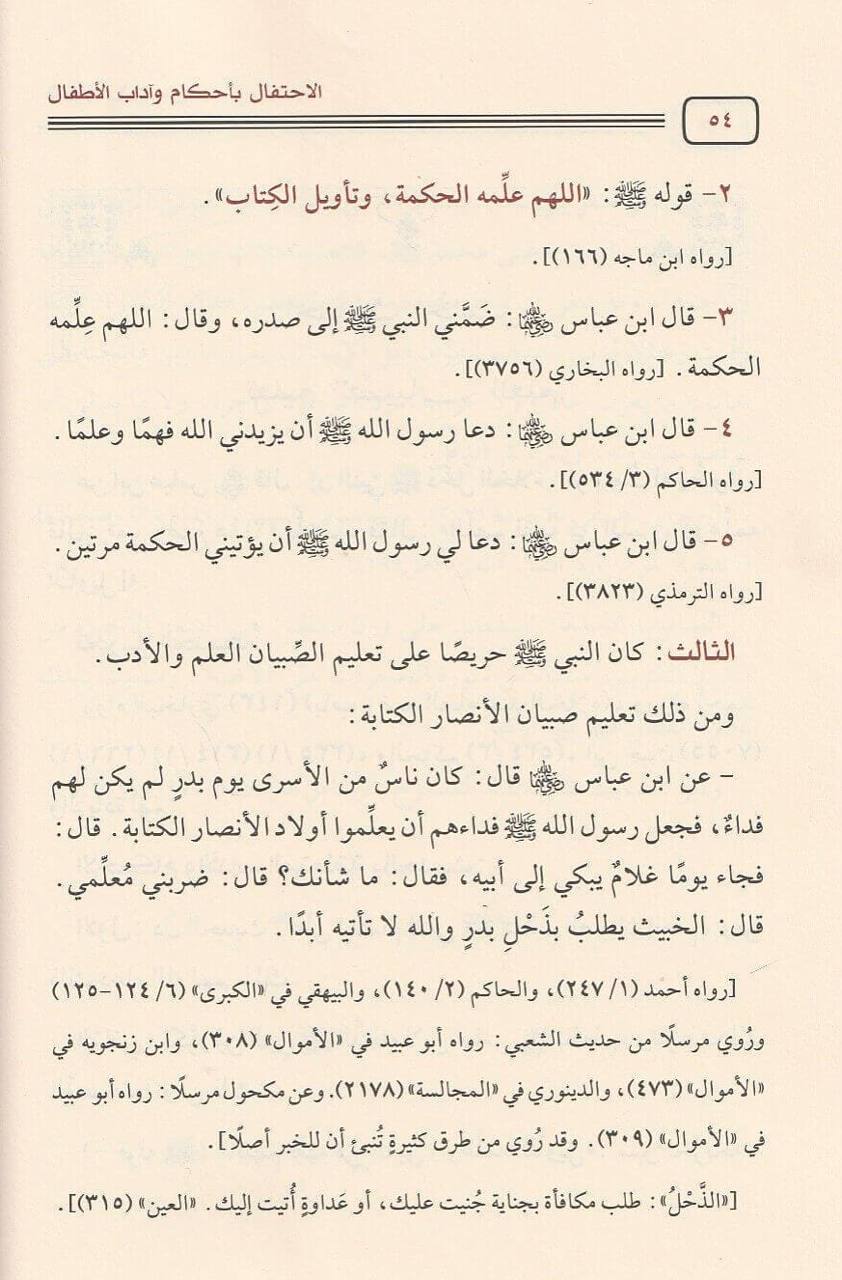 الاحتفال بأحكام وآداب الأطفال
٥٤
٢- قوله ﷺ: «اللهم علِّمه الحكمة، وتأويل الكِتاب».
[رواه ابن ماجه (١٦٦)].
٣- قال ابن عباس رضي الله عنهما: ضَمَّني النبي ﷺ إلى صدره، وقال: اللهم علِّمه
الحكمة. [رواه البخاري (٣٧٥٦)].
٤- قال ابن عباس رضي الله عنهما: دعا رسول الله ﷺ أن يزيدني الله فهمًا وعلمًا.
[رواه الحاكم (٣/ ٥٣٤)].
٥- قال ابن عباس رضي الله عنهما: دعا لي رسول الله ﷺ أن يؤتيني الحكمة مرتين.
[رواه الترمذي (٣٨٢٣)].
الثالث: كان النبي ﷺ حريصًا على تعليم الصِّبيان العلم والأدب.
ومن ذلك تعليم صبيان الأنصار الكتابة:
- عن ابن عباس رضي الله عنهما قال: كان ناسٌ من الأسرى يوم بدرٍ لم يكن لهم
فداءٌ، فجعل رسول الله ﷺ فداءهم أن يعلِّموا أولاد الأنصار الكتابة. قال:
فجاء يومًا غلامٌ يبكي إلى أبيه، فقال: ما شأنك؟ قال: ضربني مُعلِّمي.
قال: الخبيث يطلبُ بذَحْلِ بدرٍ والله لا تأتيه أبدًا.
[رواه أحمد (١/ ٢٤٧)، والحاكم (٢/ ١٤٠)، والبيهقي في «الكبرى» (٦/ ١٢٤-١٢٥)
ورُوي مرسلًا من حديث الشعبي: رواه أبو عبيد في «الأموال» (٣٠٨)، وابن زنجويه في
«الأموال» (٤٧٣)، والدينوري في «المجالسة» (٢١٧٨). وعن مكحول مرسلًا: رواه أبو عبيد
في «الأموال» (٣٠٩). وقد رُوي من طرق كثيرةٍ تُنبئ أن للخبر أصلًا].
[«الذَّحْلُ»: طلب مكافأة بجناية جُنيت عليك، أو عَداوةٍ أُتيت إليك. «العين» (٣١٥)].